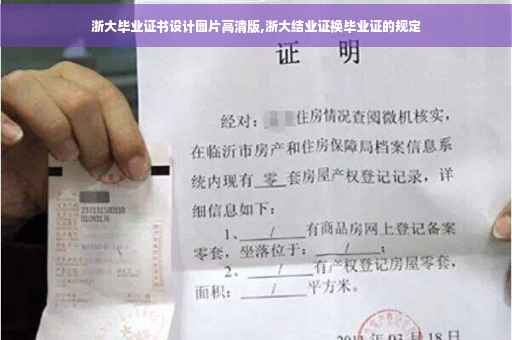 浙大毕业证书设计图片高清版,浙大结业证换毕业证的规定
证 明
经对: 住房情况查阅微机核实,
在临沂市房产和住房保障局档案信息系
统内现有 零 套房屋产权登记记录,详
细信息如下:
1、 / 有商品房网上登记备案
零套,坐落位于: / ;
2、 / 有产权登记房屋零套,
面积: / 平方米。